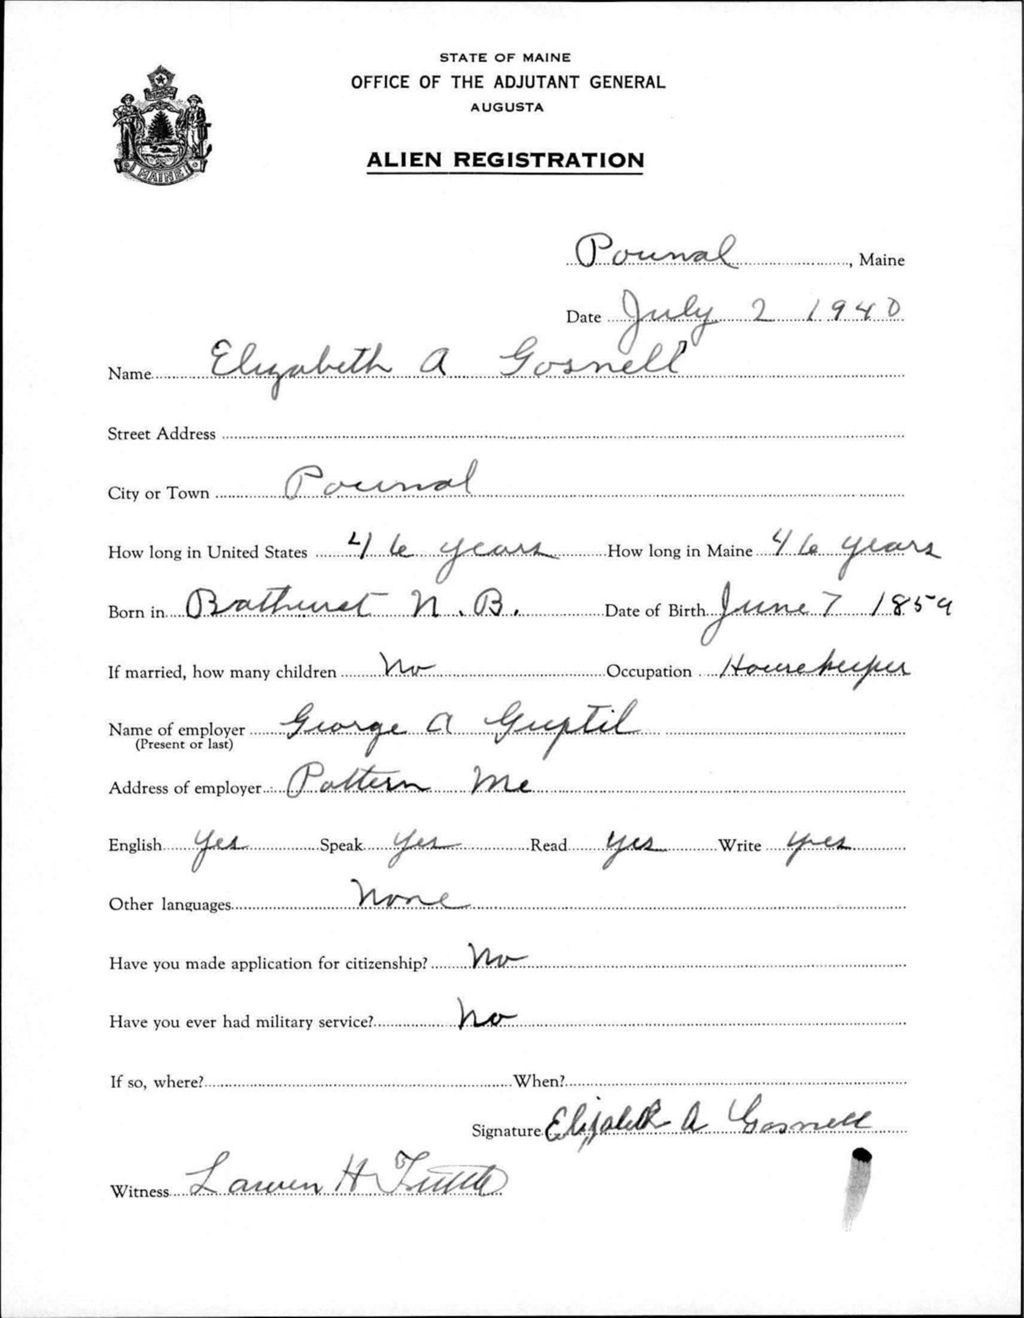 STATE OF MAINE
OFFICE OF THE ADJUTANT GENERAL
AUGUSTA
MAINE
ALIEN REGISTRATION
Pownal, Maine
Date July 2 1940
Name Elizabeth A Gosnell
Street Address
City or Town Pownal
How long in United States 46 years How long in Maine 46 years
Born in Bathurst N.B. Date of Birth June 7 1859
If married, how many children No Occupation Housekeeper
Name of employer George A Guptil
(Present or last)
Address of employer Pattern Me
English Yes Speak Yes Read yes Write yes
Other languages None
Have you made application for citizenship? No
Have you ever had military service? No
If so, where? When?
Signature Elizabeth A Gosnell
Witness H Tuttle